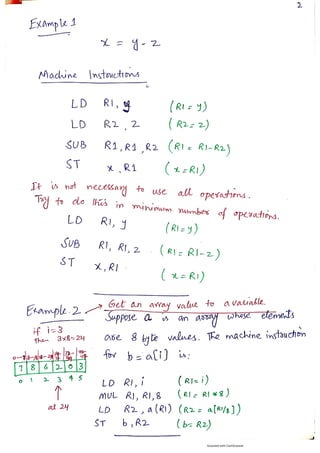 2
Example 1
x = y - z
Machine Instructions
LD R1, y (R1 = y)
LD R2, z (R2 = z)
SUB R1, R1, R2 (R1 = R1-R2)
ST x, R1 (x = R1)
It is not necessary to use all operations.
Try to do this in minimum number of operations.
LD R1, y (R1 = y)
SUB R1, R1, z (R1 = R1 - z)
ST x, R1 (x = R1)
Example 2 → Get an array value to a variable.
Suppose a is an array whose elements
if i=3
are 8 byte values. The machine instruction
then 3x8=24
for b = a[i] is:
7 8 6 2 0 3
0 1 2 3 4 5
LD R1, i (R1 = i)
MUL R1, R1, 8 (R1 = R1 * 8)
at 24
LD R2, a(R1) (R2 = a[R1/8])
ST b, R2 (b = R2)
Scanned with CamScanner